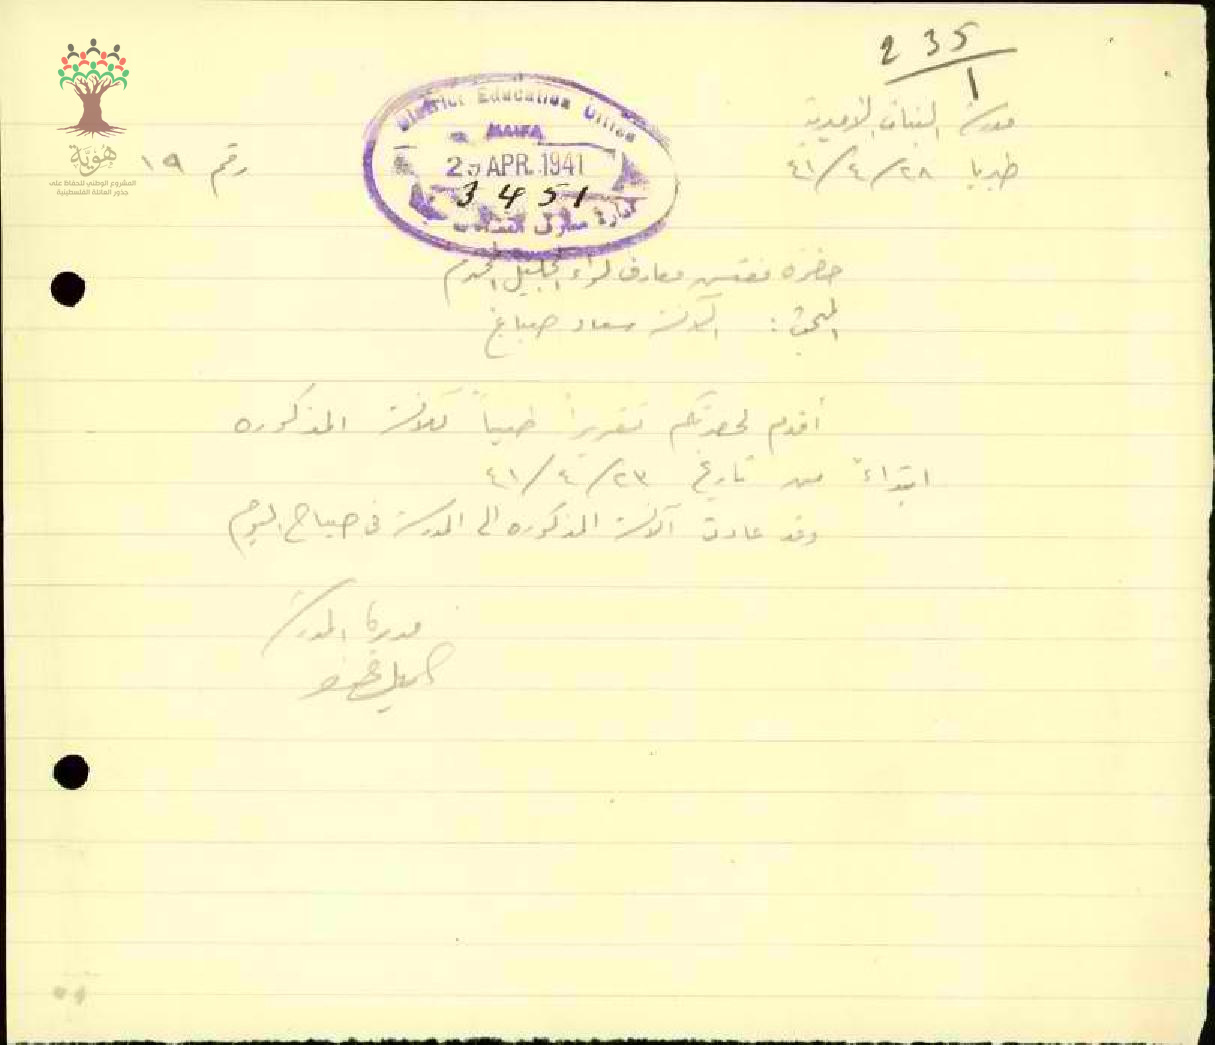 235
1
مدرسة البنات الاميرية
طبريا ٢٨/٤/٤١
رقم ١٩
هُوِيَّة
المشروع الوطني للحفاظ على
جذور العائلة الفلسطينية
District Education Office
HAIFA
APR. 1941
3451
ادارة معارف
حضرة مفتش معارف لواء الجليل المحترم
المبحث : الآنسة سعاد صباغ
أقدم لحضرتكم تقريراً طبياً للآنسة المذكوره
ابتداءً من تاريخ ٢٣/٤/٤١
وقد عادت الآنسة المذكوره الى المدرسة في صباح اليوم
مديرة المدرسة